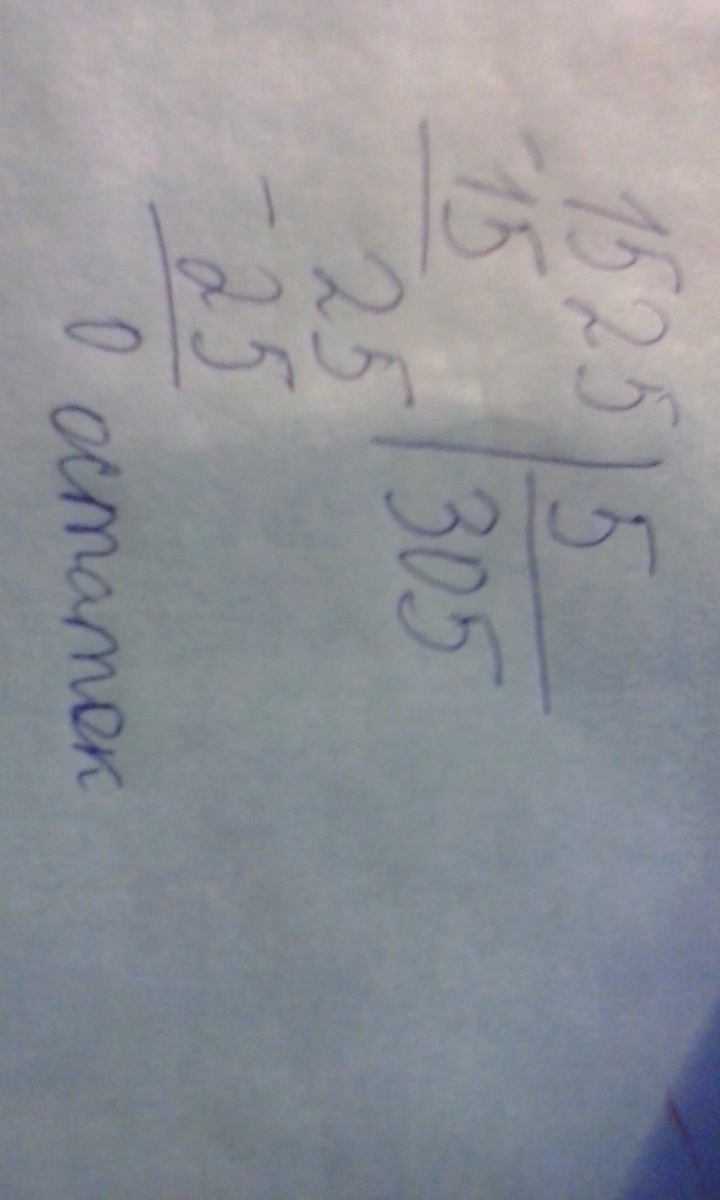 1525 | 5
- 15 305
25
- 25
0 остаток